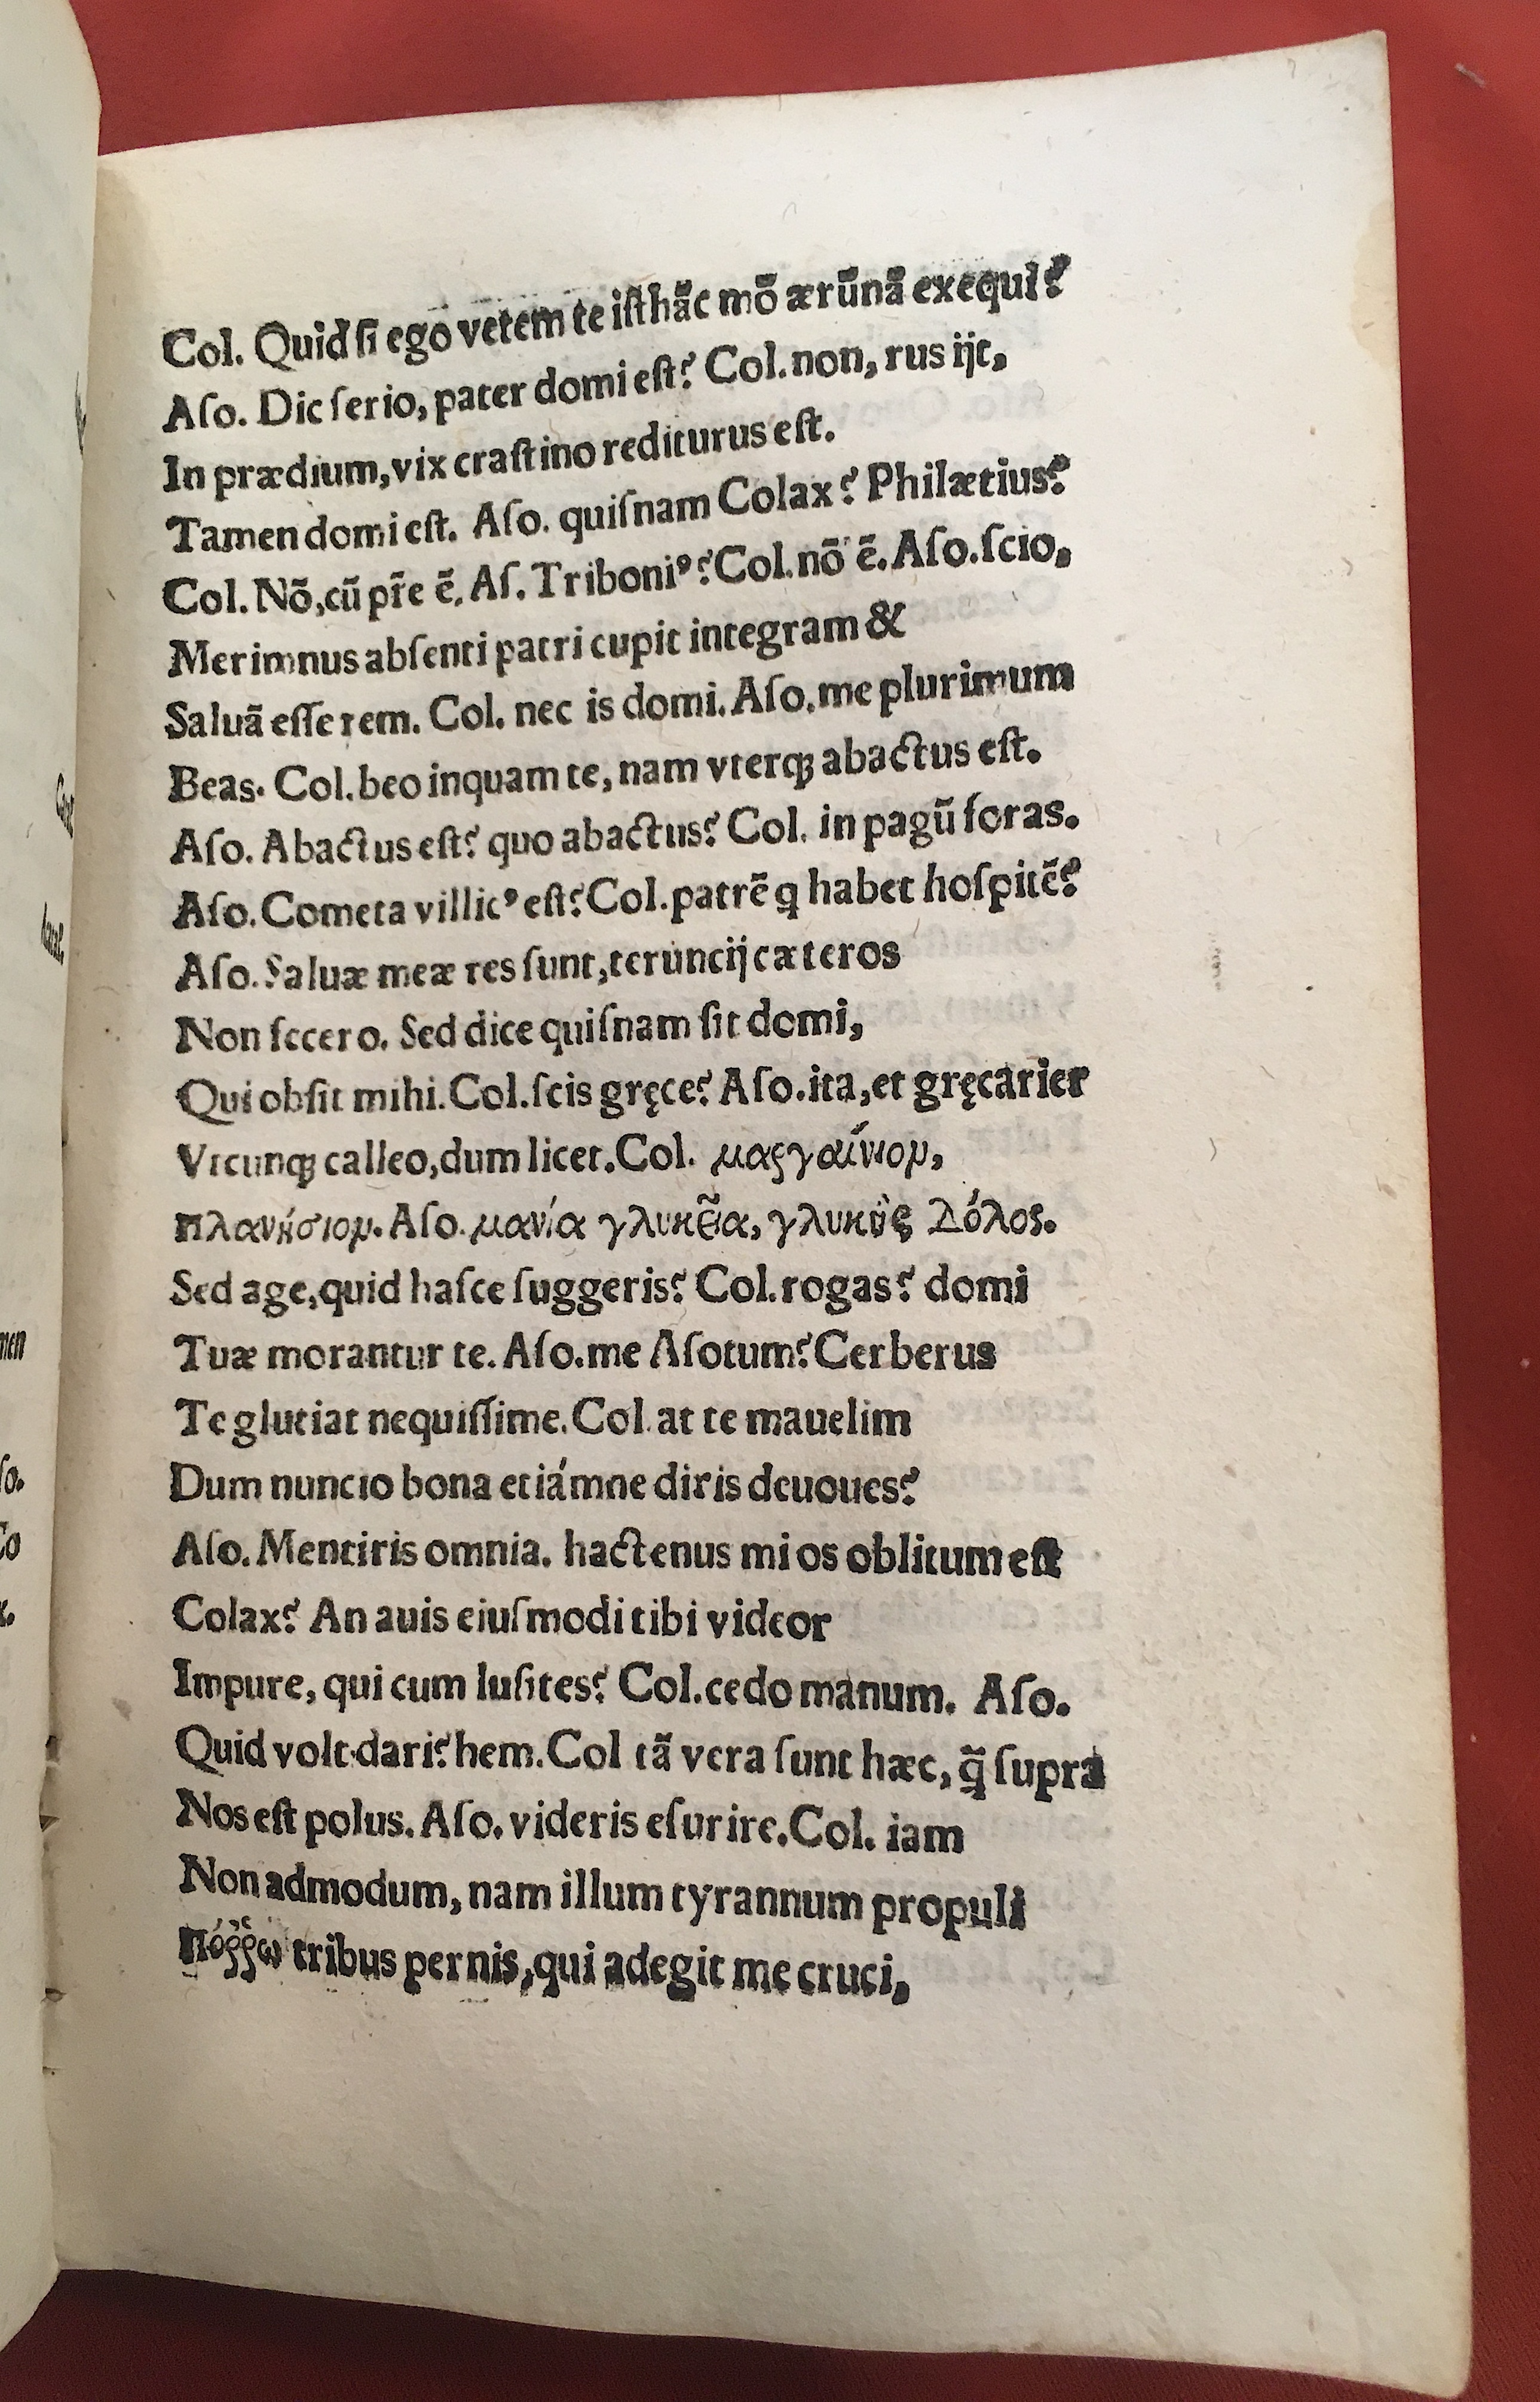 Col. Quid ſi ego vetem te iſthãc mõ ærũnã exequi?
Aſo. Dic ſerio, pater domi eſt? Col. non, rus ijt,
In prædium, vix craſtino rediturus eſt.
Tamen domi eſt. Aſo. quiſnam Colax? Philætius?
Col. Nõ, cũ pr̃e ẽ. Aſ. Triboniꝰ? Col. nõ ẽ. Aſo. ſcio,
Merimnus abſenti patri cupit integram &
Saluã eſſe rem. Col. nec is domi. Aſo. me plurimum
Beas. Col. beo inquam te, nam vterqꝫ abactus eſt.
Aſo. Abactus eſt? quo abactus? Col. in pagũ foras.
Aſo. Cometa villicꝰ eſt? Col. patrẽ q habet hoſpitẽ?
Aſo. Saluæ meæ res ſunt, terunc̄ij cæteros
Non fecero. Sed dice quiſnam ſit domi,
Qui obſit mihi. Col. ſcis gręce? Aſo. ita, et gręcarier
Vtcunqꝫ calleo, dum licet. Col. μαργαίνιον,
πλανήσιον. Aſo. μανία γλυκεῖα, γλυκὺς δόλος.
Sed age, quid haſce ſuggeris? Col. rogas? domi
Tuæ morantur te. Aſo. me Aſotum? Cerberus
Te glutiat nequiſſime. Col. at te mauelim
Dum nuncio bona etiámne diris deuoues?
Aſo. Mentiris omnia. hactenus mi os oblitum eſt
Colax? An auis eiuſmodi tibi videor
Impure, qui cum luſites? Col. cedo manum. Aſo.
Quid volt dari? hem. Col tã vera ſunt hæc, q̃ ſupra
Nos eſt polus. Aſo. videris eſurire. Col. iam
Non admodum, nam illum tyrannum propuli
πόῤῥω tribus pernis, qui adegit me cruci,